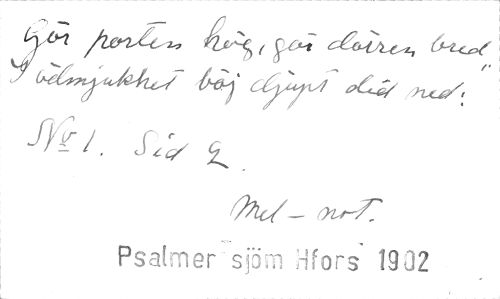 Gör porten hög, gör dörren bred,
I ödmjukhet böj djupt did ned:
No 1. Sid 2.
Mel-not.
Psalmer sjöm Hfors 1902